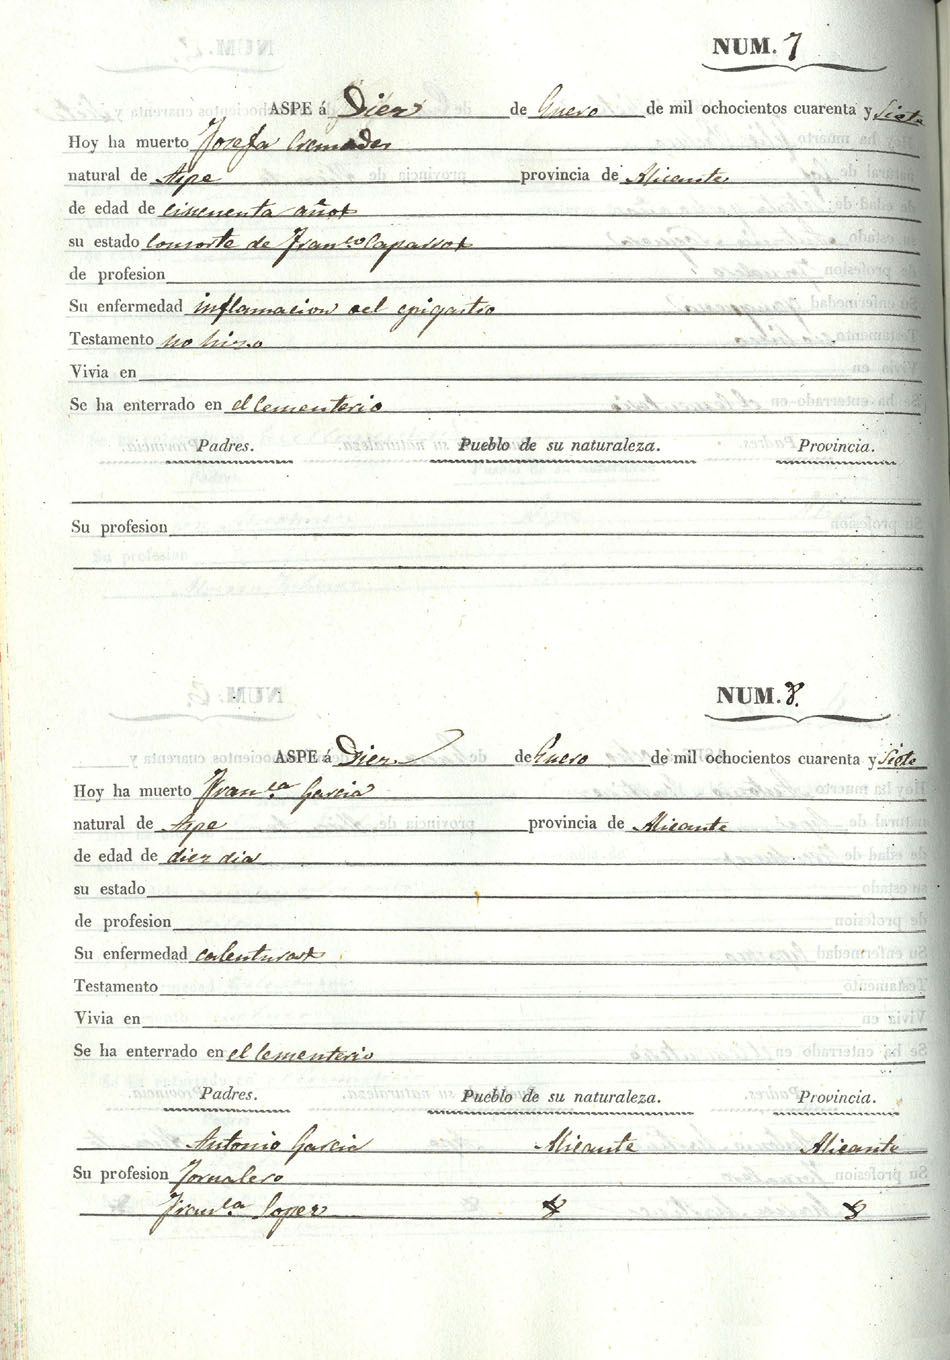 NUM. 7
ASPE á Diez de Enero de mil ochocientos cuarenta y Siete
Hoy ha muerto Josefa Cremades
natural de Aspe provincia de Alicante
de edad de cincuenta años
su estado Consorte de Fran.co Caparros
de profesion
Su enfermedad inflamacion del epigastrio
Testamento no hizo
Vivia en
Se ha enterrado en el Cementerio
Padres. Pueblo de su naturaleza. Provincia.
Su profesion
NUM. 8.
ASPE á Diez de Enero de mil ochocientos cuarenta y Siete
Hoy ha muerto Fran.ca Garcia
natural de Aspe provincia de Alicante
de edad de diez dia
su estado
de profesion
Su enfermedad calenturas
Testamento
Vivia en
Se ha enterrado en el Cementerio
Padres. Pueblo de su naturaleza. Provincia.
Antonio Garcia Alicante Alicante
Su profesion Jornalero
Fran.ca Lopez